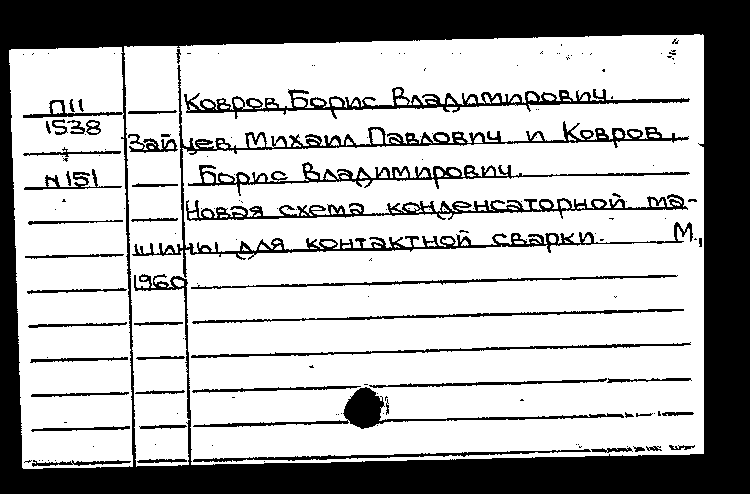 П11 Ковров, Борис Владимирович.
1538 Зайцев, Михаил Павлович и Ковров,
N151 Борис Владимирович.
Новая схема конденсаторной ма-
шины для контактной сварки. М.,
1960